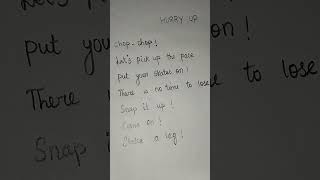 HURRY UP
Chop-chop!
Let's pick up the pace
Put your skates on!
There is no time to lose
Snap it up!
Come on!
Shake a leg!